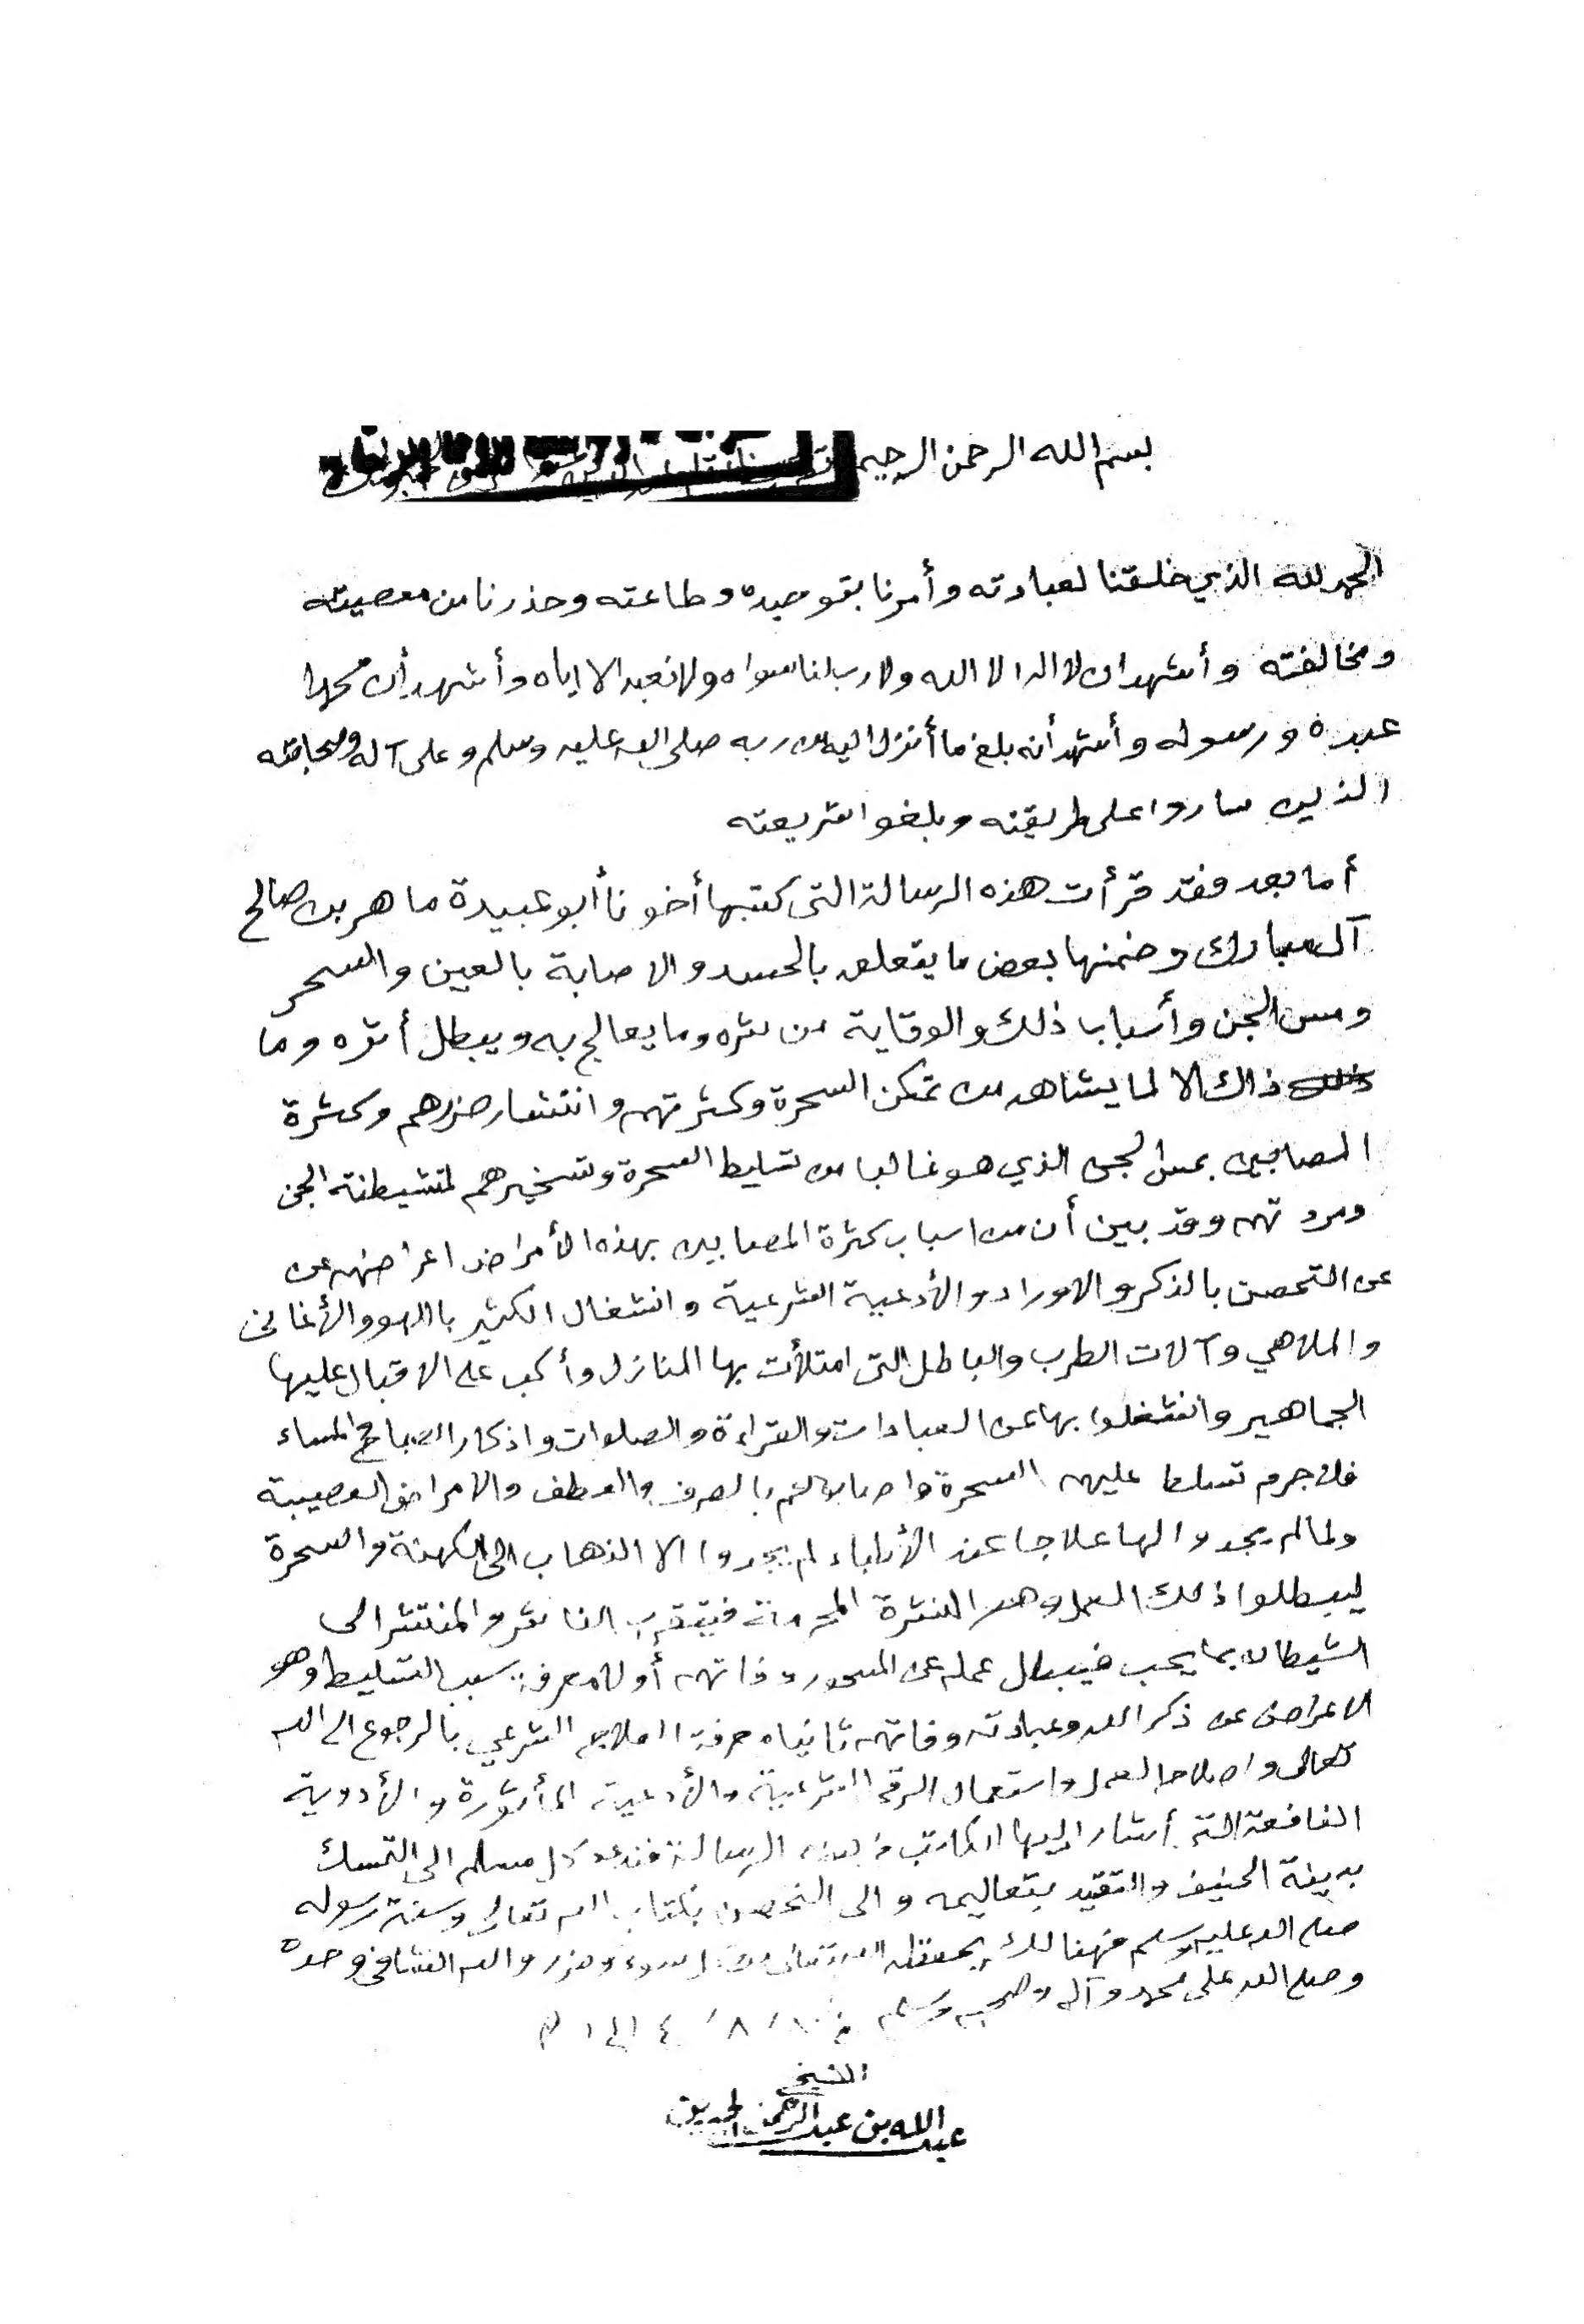 بسم الله الرحمن الرحيم
الحمد لله الذي خلقنا لعبادته وأمرنا بتوحيده وطاعته وحذرنا من معصيته
ومخالفته وأشهد ان لا اله الا الله ولا رب لنا سواه ولا نعبد الا اياه وأشهد أن محمدا
عبده ورسوله وأشهد أنه بلغ ما أنزل اليه من ربه صلى الله عليه وسلم وعلى آله وصحابته
الذين ساروا على طريقته وبلغوا شريعته
أما بعد فقد قرأت هذه الرسالة التى كتبها أخونا أبو عبيدة ماهر بن صالح
آل مبارك وضمنها بعض ما يتعلق بالحسد والاصابة بالعين والسحر
ومس الجن وأسباب ذلك والوقاية من شره وما يعالج به ويبطل أثره وما
ذاك الا لما يشاهد من تمكن السحرة وكثرتهم وانتشار ضررهم وكثرة
المصابين بمس الجن الذي هو غالبا من تسليط السحرة وتسخيرهم لشيطنة الجن
ومردتهم وقد بين أن من اسباب كثرة المصابين بهذه الأمراض اعراضهم عن
عن التحصن بالذكر والاوراد والأدعية الشرعية وانشغال الكثير باللهو والأغانى
والملاهي وآلات الطرب والباطل التى امتلأت بها المنازل وأكب على الاقبال عليها
الجماهير وانشغلوا بها عن العبادات والقراءة والصلوات واذكار الصباح والمساء
فلا جرم تسلط عليهم السحرة واصابوهم بالصرف والعطف والامراض العصيبة
ولما لم يجدوا لها علاجا عند الأطباء لم يجدوا الا الذهاب الى الكهنة والسحرة
ليبطلوا ذلك العمل وهى النشرة المحرمة فيتقرب الناشر والمنتشر الى
الشيطان بما يحب فيبطل عمله عن المسحور وفاتهم أولا معرفة سبب التسليط وهو
الاعراض عن ذكر الله وعبادته وفاتهم ثانيا معرفة العلاج الشرعي بالرجوع الى الله
تعالى واصلاح العمل واستعمال الرقى الشرعية والأدعية المأثورة والأدوية
النافعة التى أشار اليها الكاتب في هذه الرسالة فندعو كل مسلم الى التمسك
بدينه الحنيف والتقيد بتعاليمه والى التحصن بكتاب الله تعالى وسنة رسوله
صلى الله عليه وسلم فهنالك يحفظه الله تعالى من كل سوء وضرر والله الشافى وحده
وصلى الله على محمد وآله وصحبه وسلم
الشيخ
عبد الله بن عبد الرحمن الجبرين